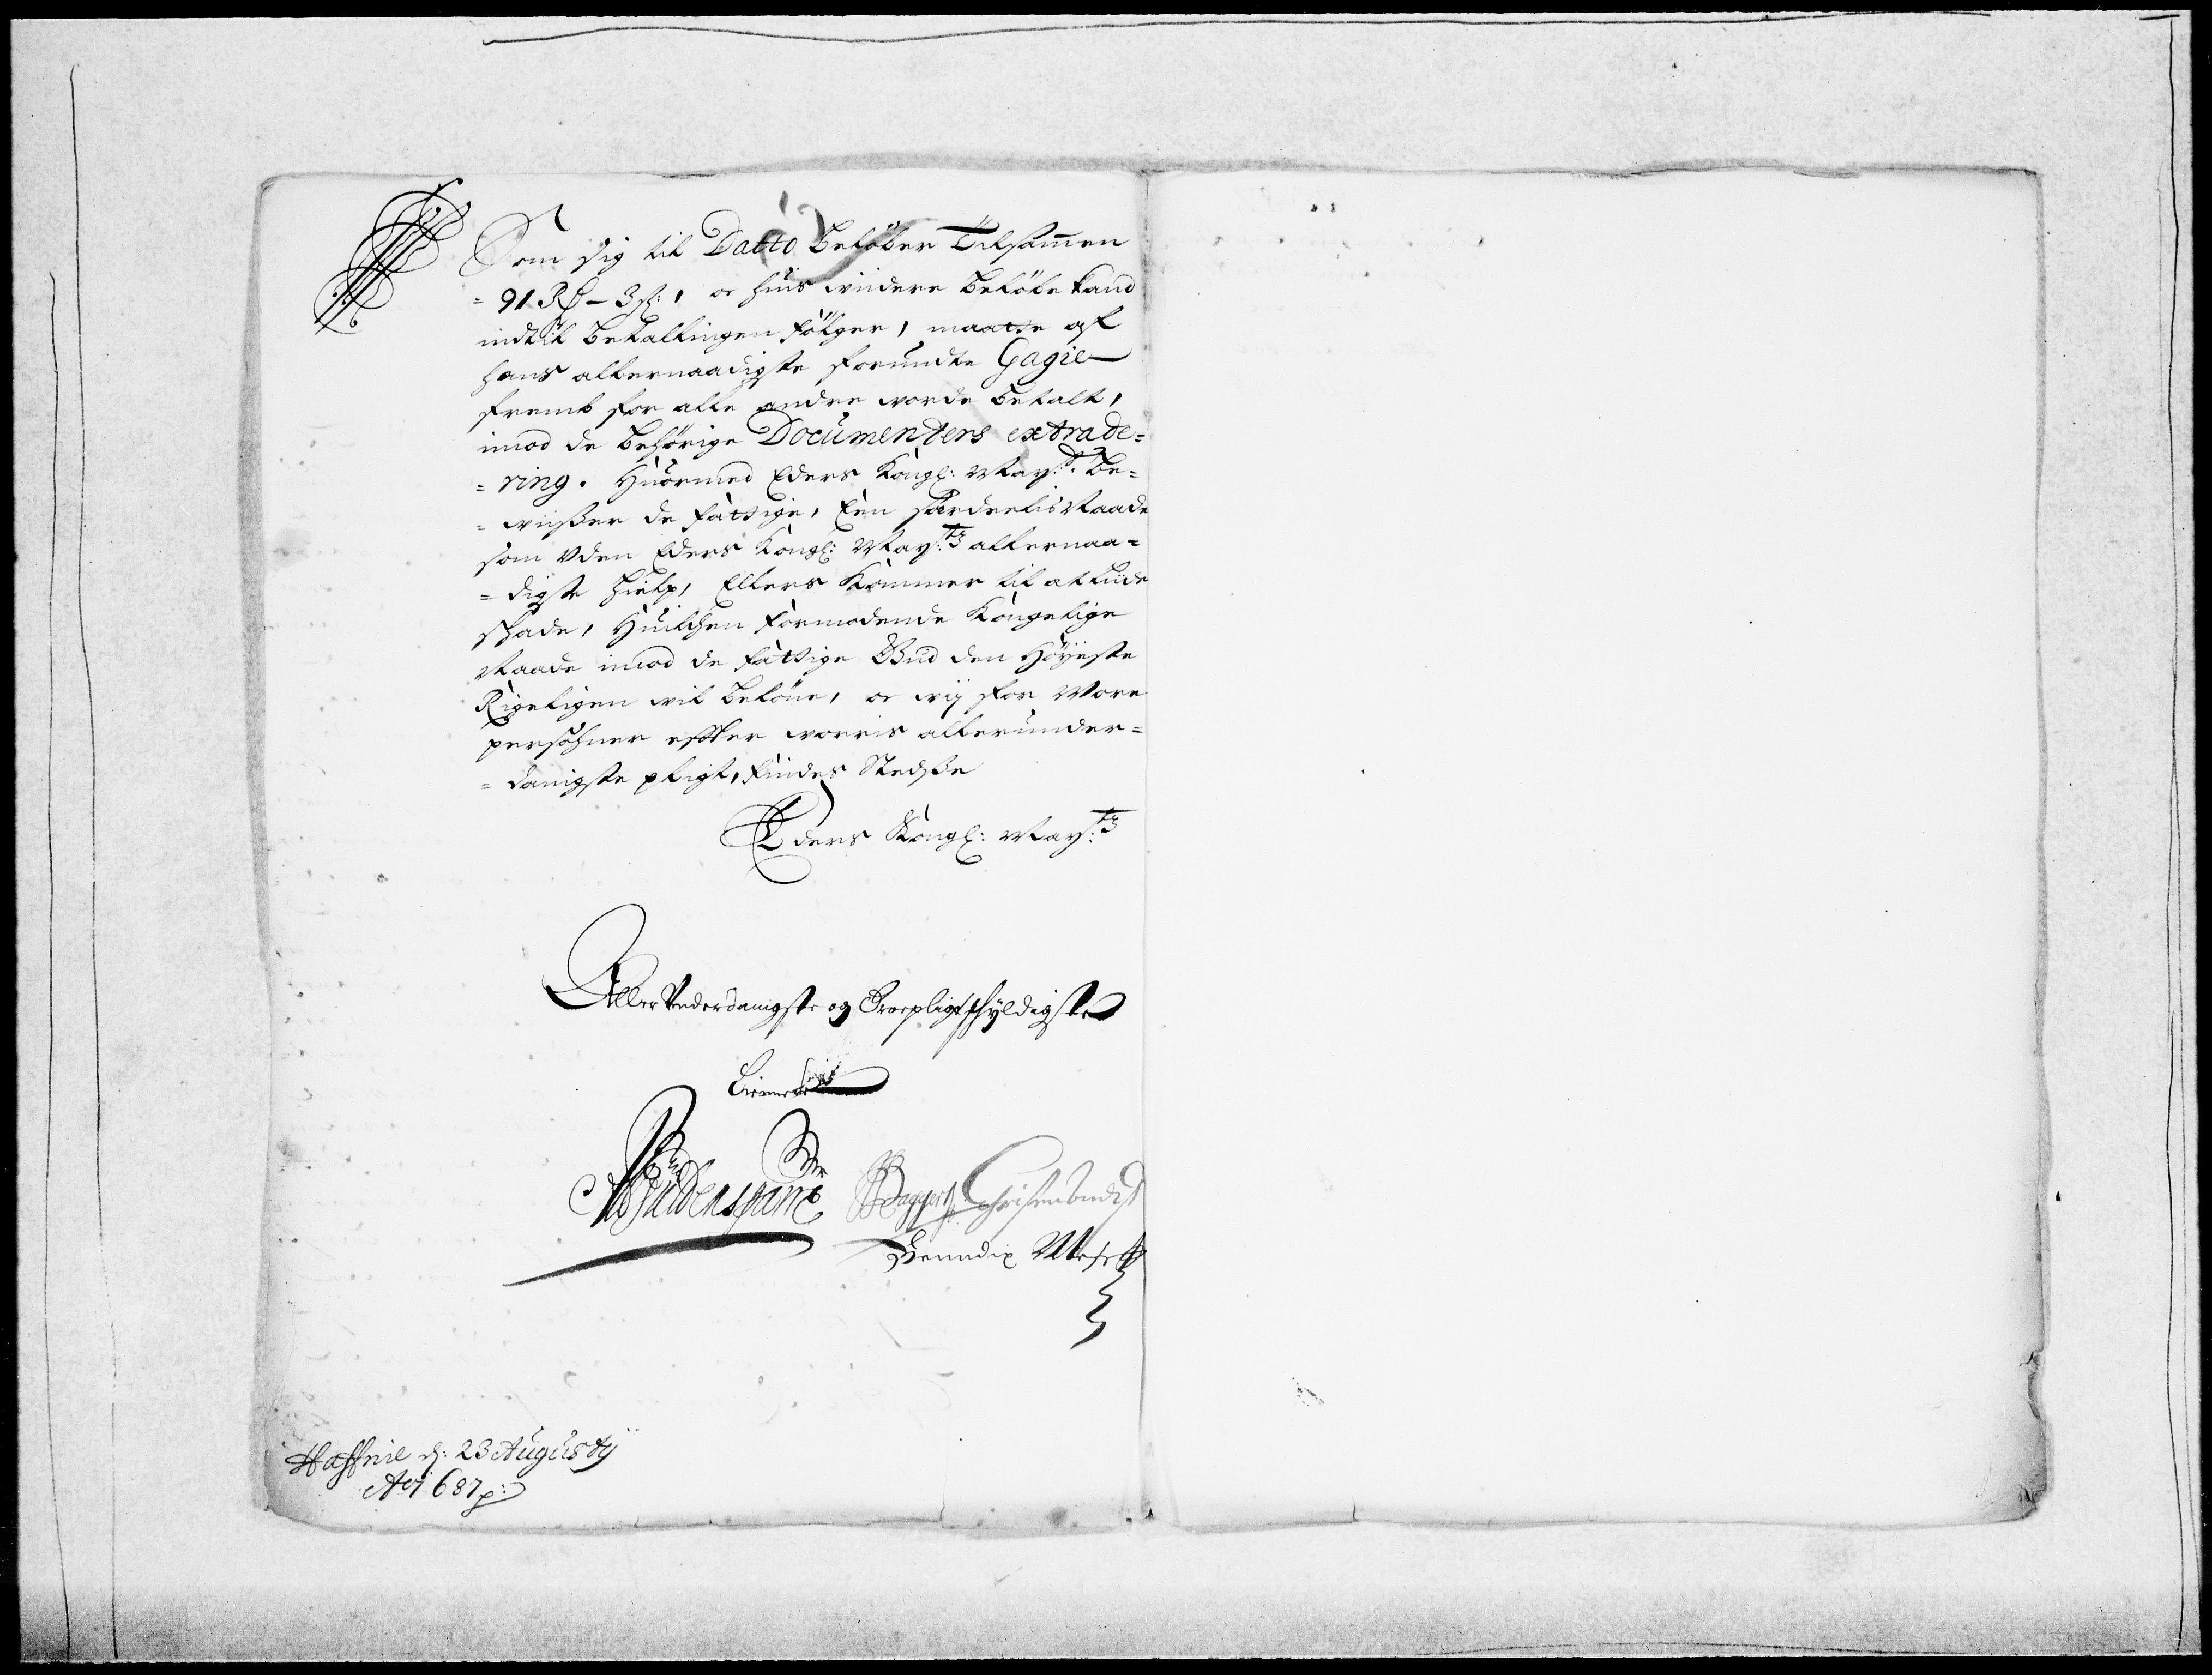 Som sig til Datto beløber Tilsammen
= 91 Rd - 3 sk:, oc huis viidere beløbe kand
indtil betallingen følger, maatte aff
hans allernaadigste forundte Gagie
fremb for alle andre vorde betalt,
imod de behørige Documenters extrade=
= ring. Huormed Eders Kongl: May:tt be=
= viißer de fattige, Een særdeelis Naade
som Uden Eders Kongl: May:tz allernaa=
= digste hielp, Ellers kommer til at liide
skade, Huilchen formodende Kongelige
Naade imod de fattige Gud den Høyeste
Rigeligen vil beløne, oc vij for Vore
persohner effter vorris allerunder=
= danigste pligt, findes Stedße
Eders Kongl: May:tz
AllerUnderdanigste og Troepligtskyldigste
tienere
Benedix Mese
Haffnie d: 23 Augustij
Ao 1687